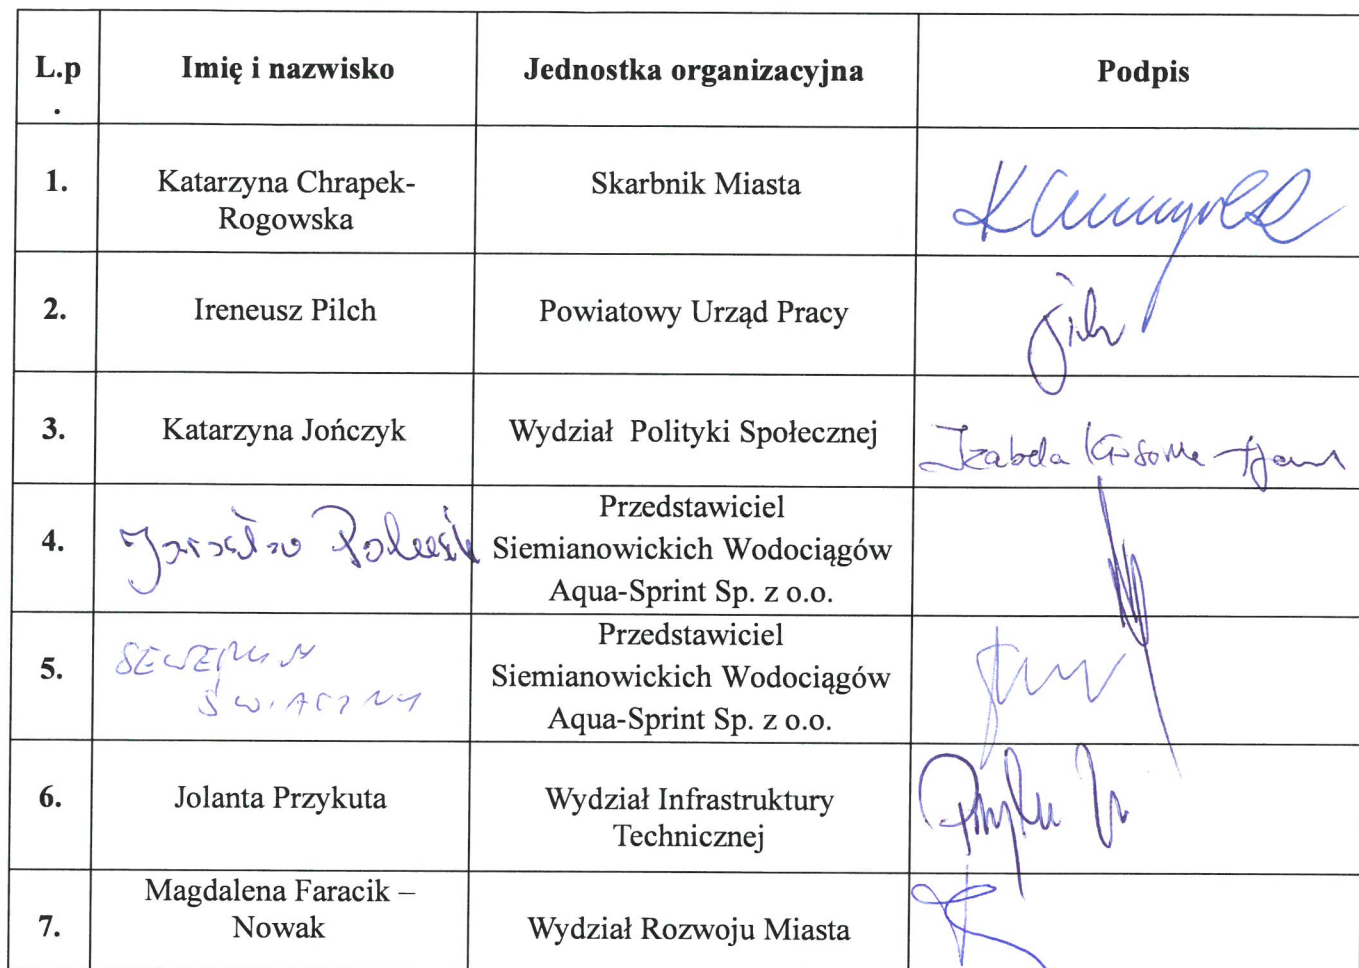 L.p. Imię i nazwisko Jednostka organizacyjna Podpis
1. Katarzyna Chrapek- Skarbnik Miasta
Rogowska
2. Ireneusz Pilch Powiatowy Urząd Pracy
3. Katarzyna Jończyk Wydział Polityki Społecznej
Izabela
Przedstawiciel
4. Jarosław Siemianowickich Wodociągów
Aqua-Sprint Sp. z o.o.
Przedstawiciel
5. SEWERYN Siemianowickich Wodociągów
Aqua-Sprint Sp. z o.o.
6. Jolanta Przykuta Wydział Infrastruktury
Technicznej
Magdalena Faracik –
7. Nowak Wydział Rozwoju Miasta